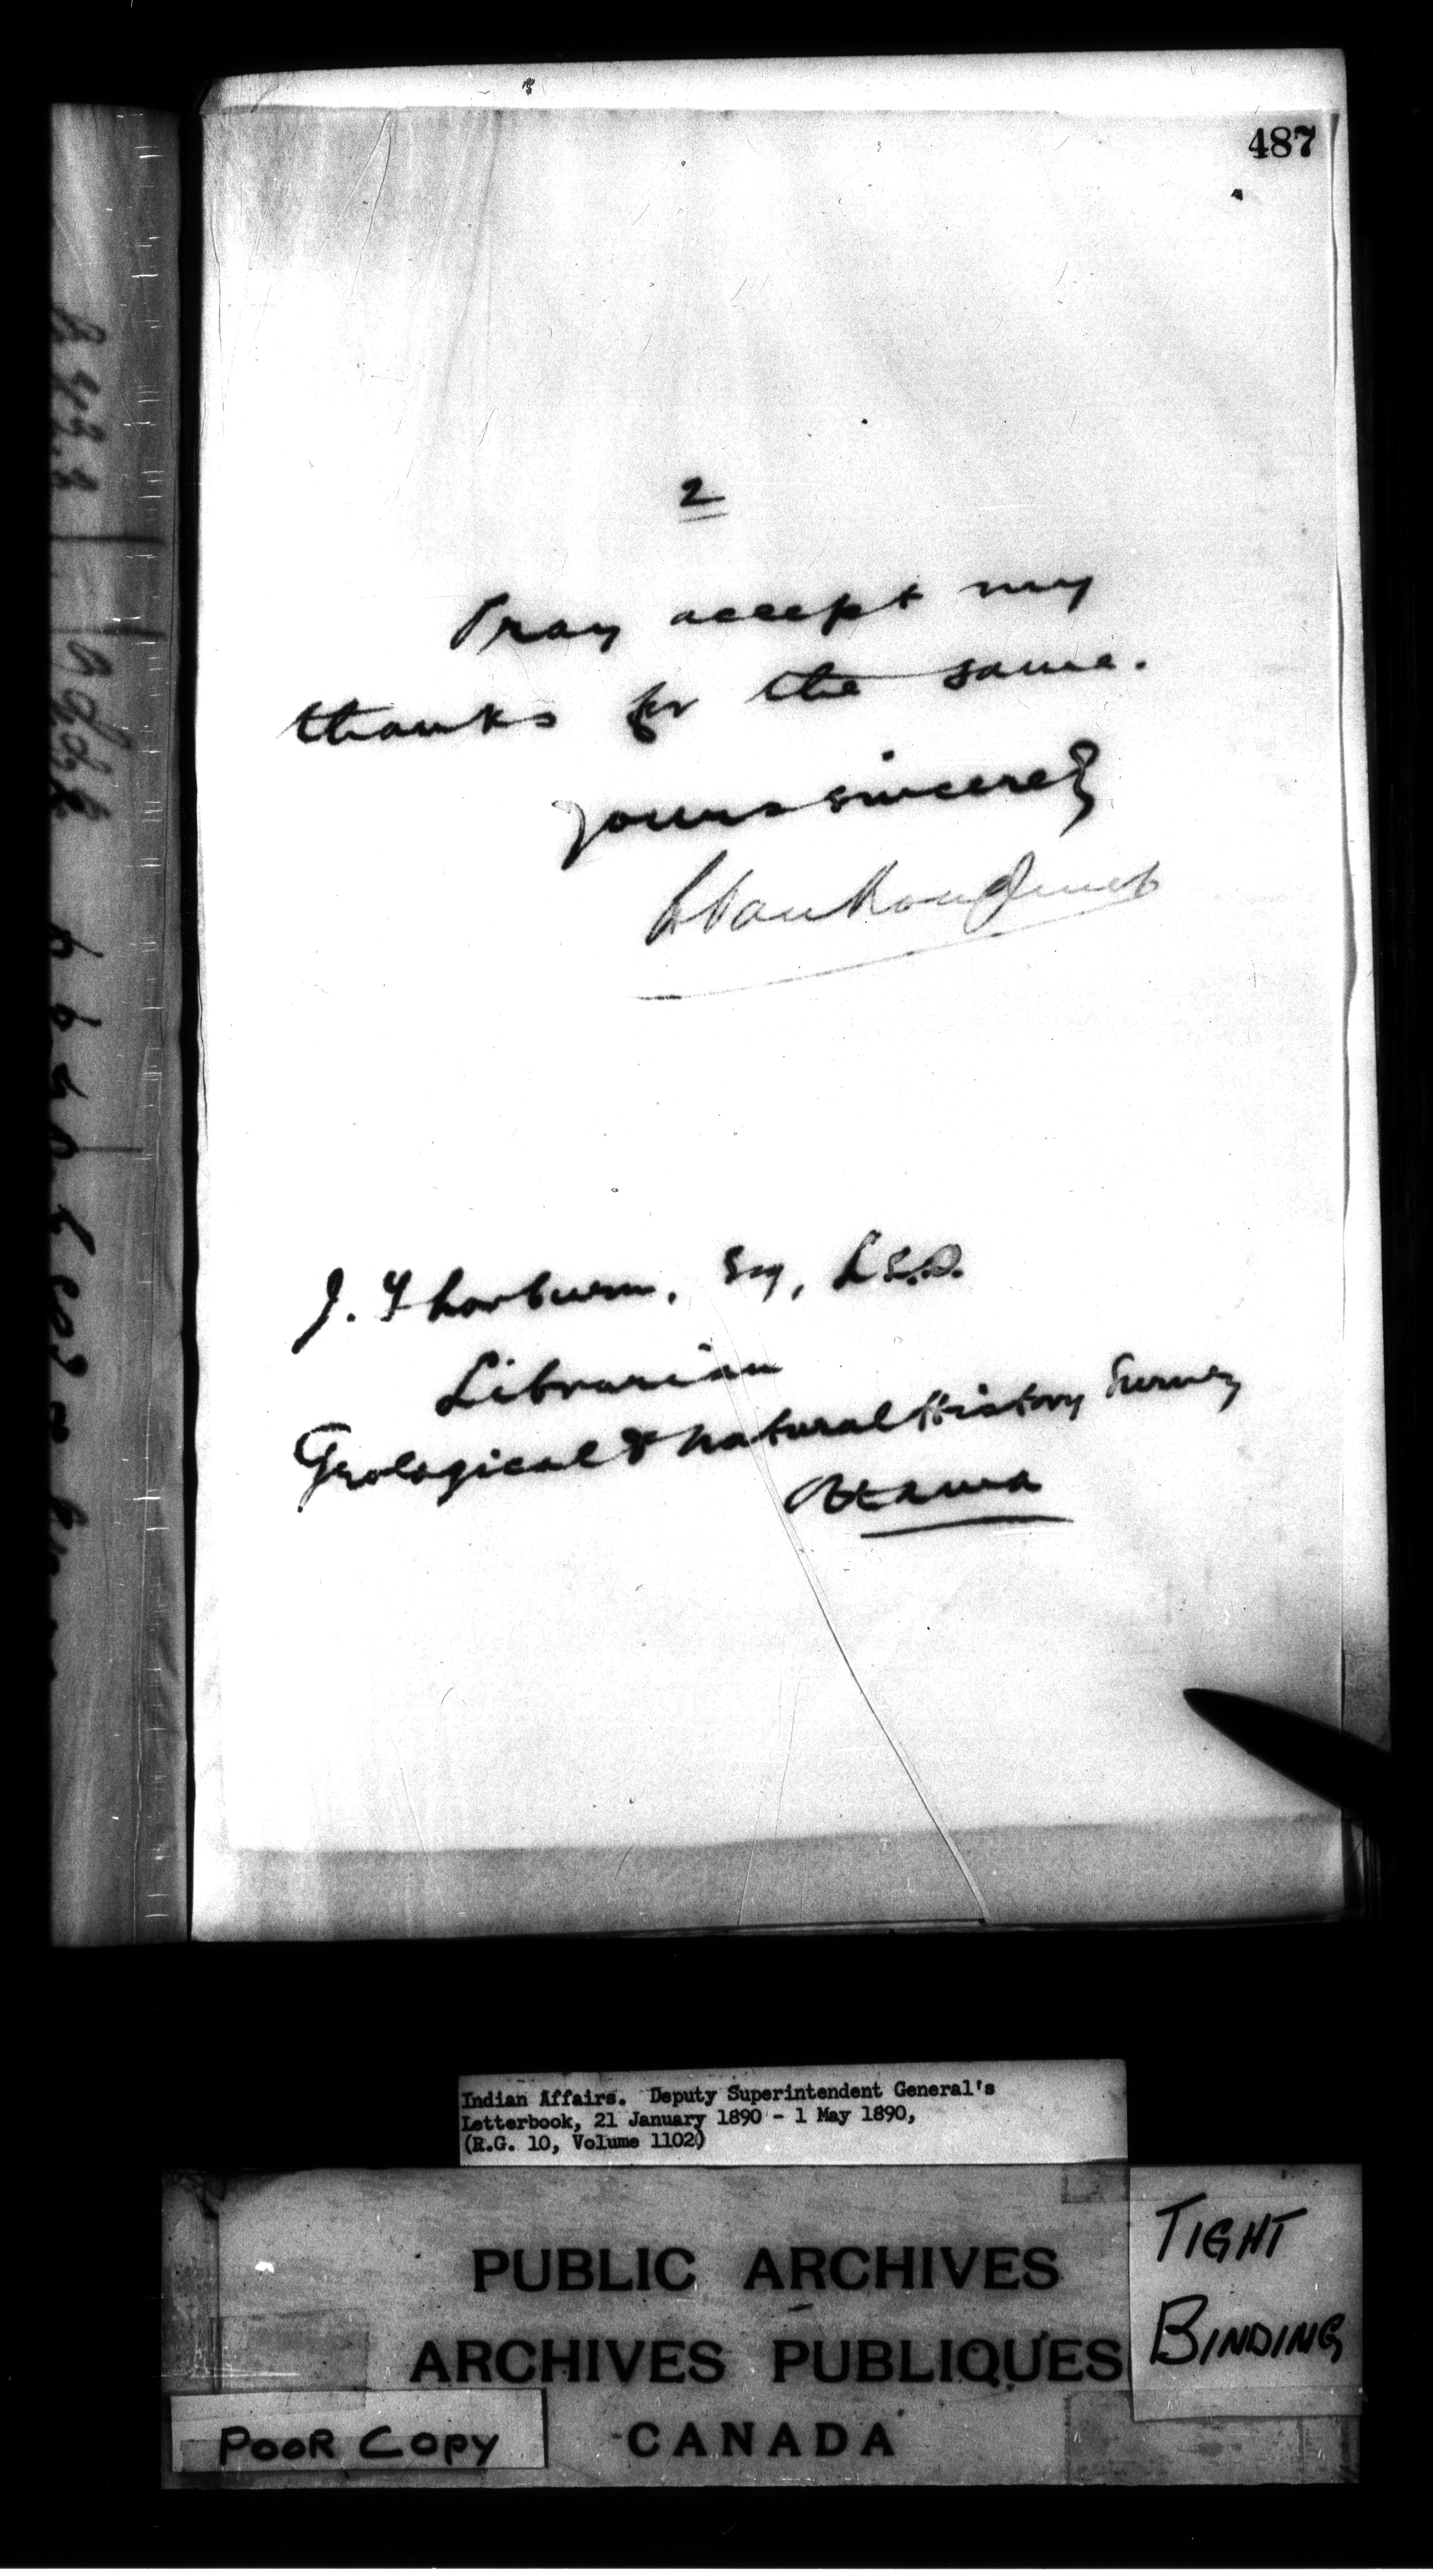 487
2
Pray accept my
thanks for the same.
Yours sincerely
L Vankoughnet
J. Thorburn, Esq, L.L.D.
Librarian
Geological & Natural History Survey
Ottawa
Indian Affairs. Deputy Superintendent General's
Letterbook, 21 January 1890 - 1 May 1890,
(R.G. 10, Volume 1102)
PUBLIC ARCHIVES
ARCHIVES PUBLIQUES
CANADA
TIGHT
BINDING
POOR COPY